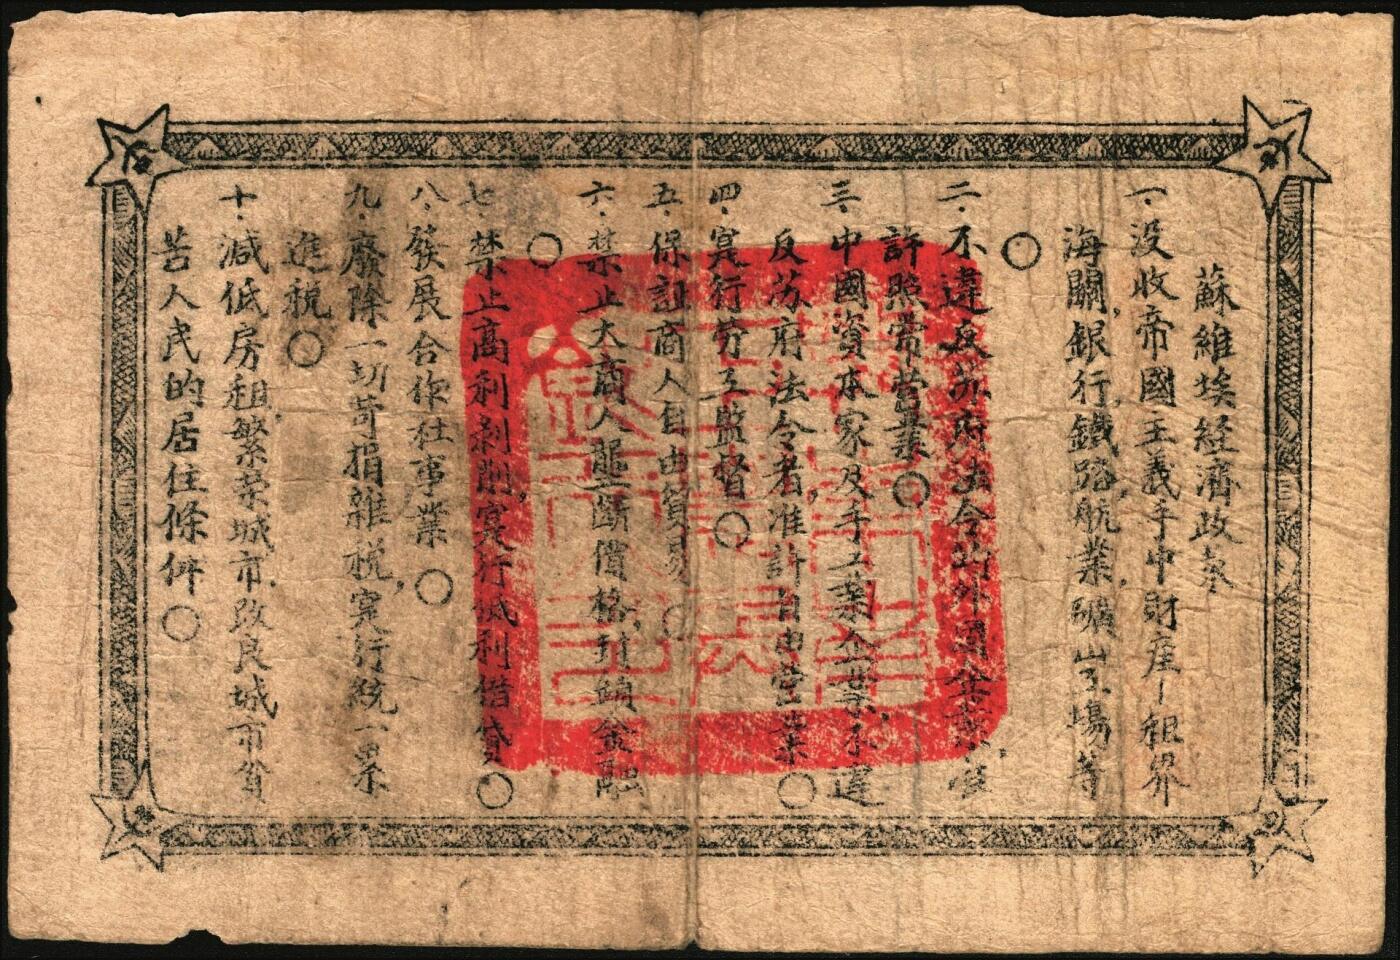 蘇維埃経濟政策
一·没收帝國主義手中財産丨租界
海關,銀行,鐵路,航業,礦山工場等
〇
二·不違反苏府法令的外國企業,准
許照常营業〇
三·中國資本家及手工業企業,不違
反苏府法令者,准許自由营業〇
四·寔行劳工監督〇
五·保証商人自由貿易〇
六·禁止大商人壟断價格,封鎖金融
〇
七·禁止高利剥削,寔行低利借貸〇
八·發展合作社事業〇
九·廢除一切苛捐雑税,寔行統一累
進税〇
十·减低房租,繁荣城市,改良城市貧
苦人民的居住條件〇